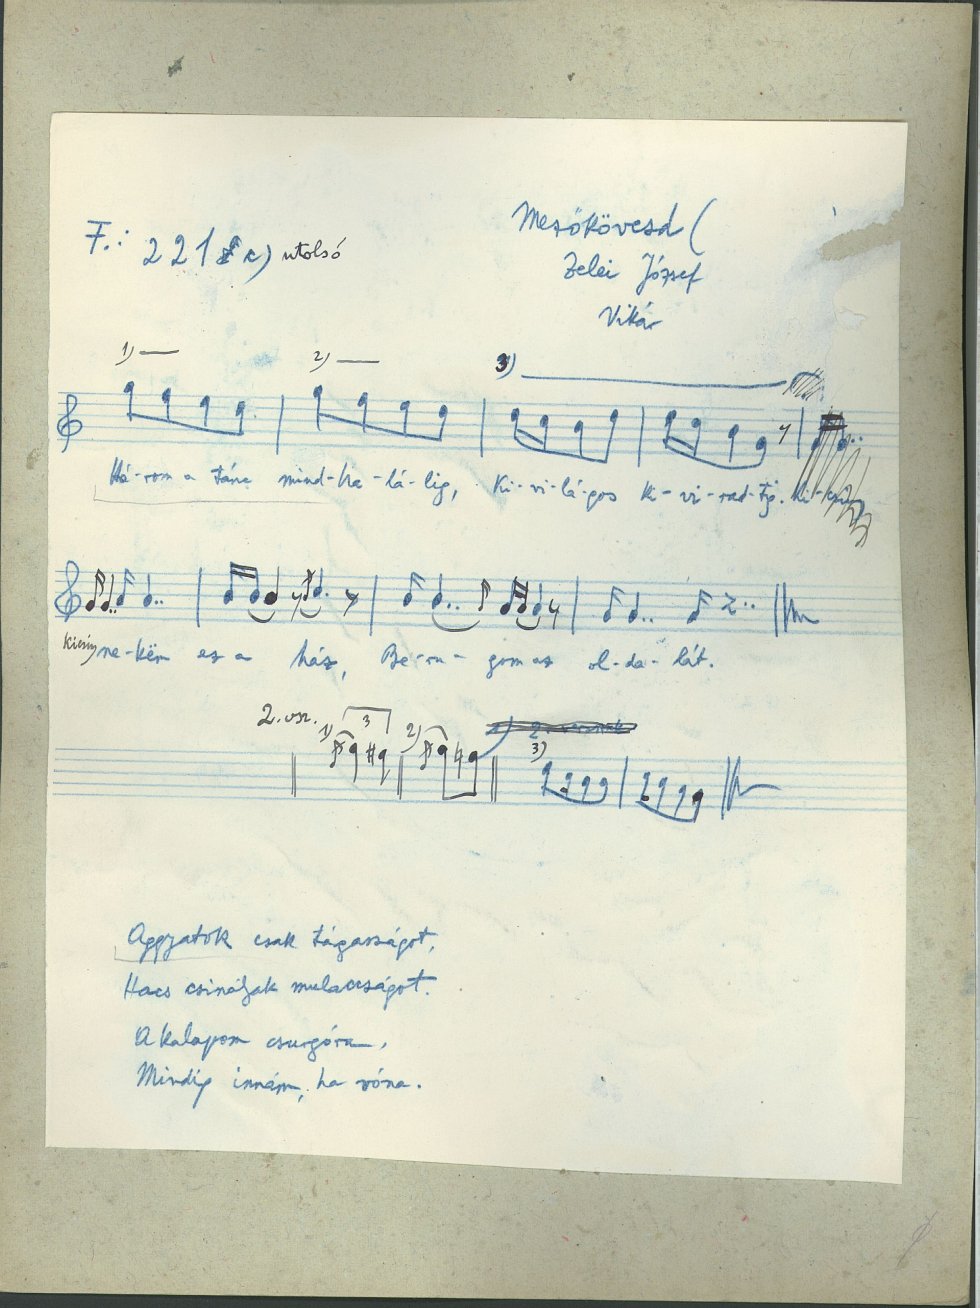 F.: 221 c) utolsó
Mezőkövesd (
Zelei József
Vikár
1) 2) 3)
Há-rom a tánc mind-ha-lá-lig, Ki-vi-lá-gos ki-vi-rad-tig.
Kicsiny ne-këm ez a ház, Be-ru-gom az ol-da-lát.
2. vsz. 1) 3 2) 3)
Aggyatok csak tágasságot,
Hacs csináljak mulaccságot.
A kalapom csurgóra,
Mindig innám, ha vóna.